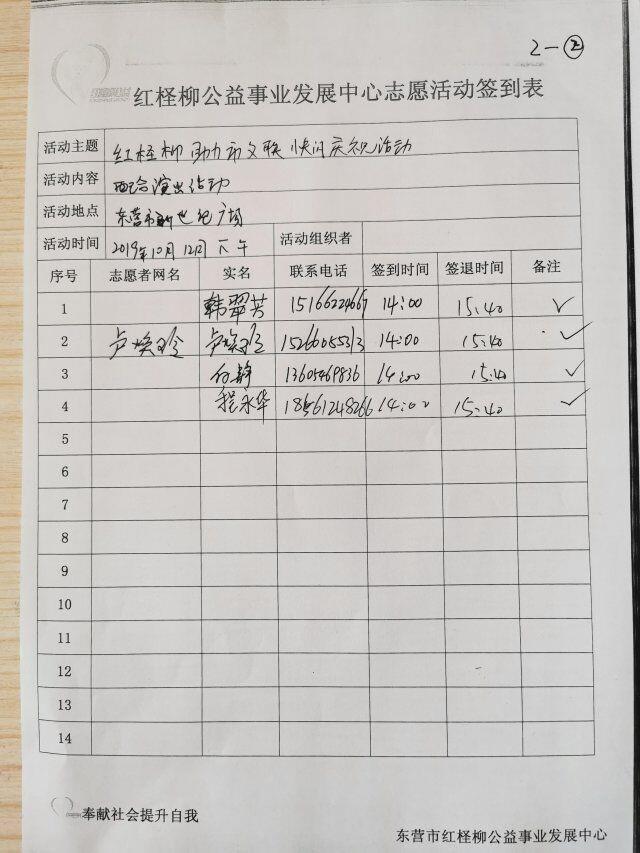 2-②
红柽柳公益事业发展中心志愿活动签到表
活动主题 红柽柳助力市文联快闪庆祝活动
活动内容 配合演出活动
活动地点 东营市新世纪广场
活动时间 2019年10月12日下午 活动组织者
序号 志愿者网名 实名 联系电话 签到时间 签退时间 备注
1 韩翠芳 15166224667 14:00 15:40 ✓
2 卢焕玲 卢焕玲 15266055313 14:00 15:40 ✓
3 静 13605469836 14:00 15:40 ✓
4 程永华 18561248266 14:00 15:40 ✓
5
6
7
8
9
10
11
12
13
14
奉献社会提升自我
东营市红柽柳公益事业发展中心